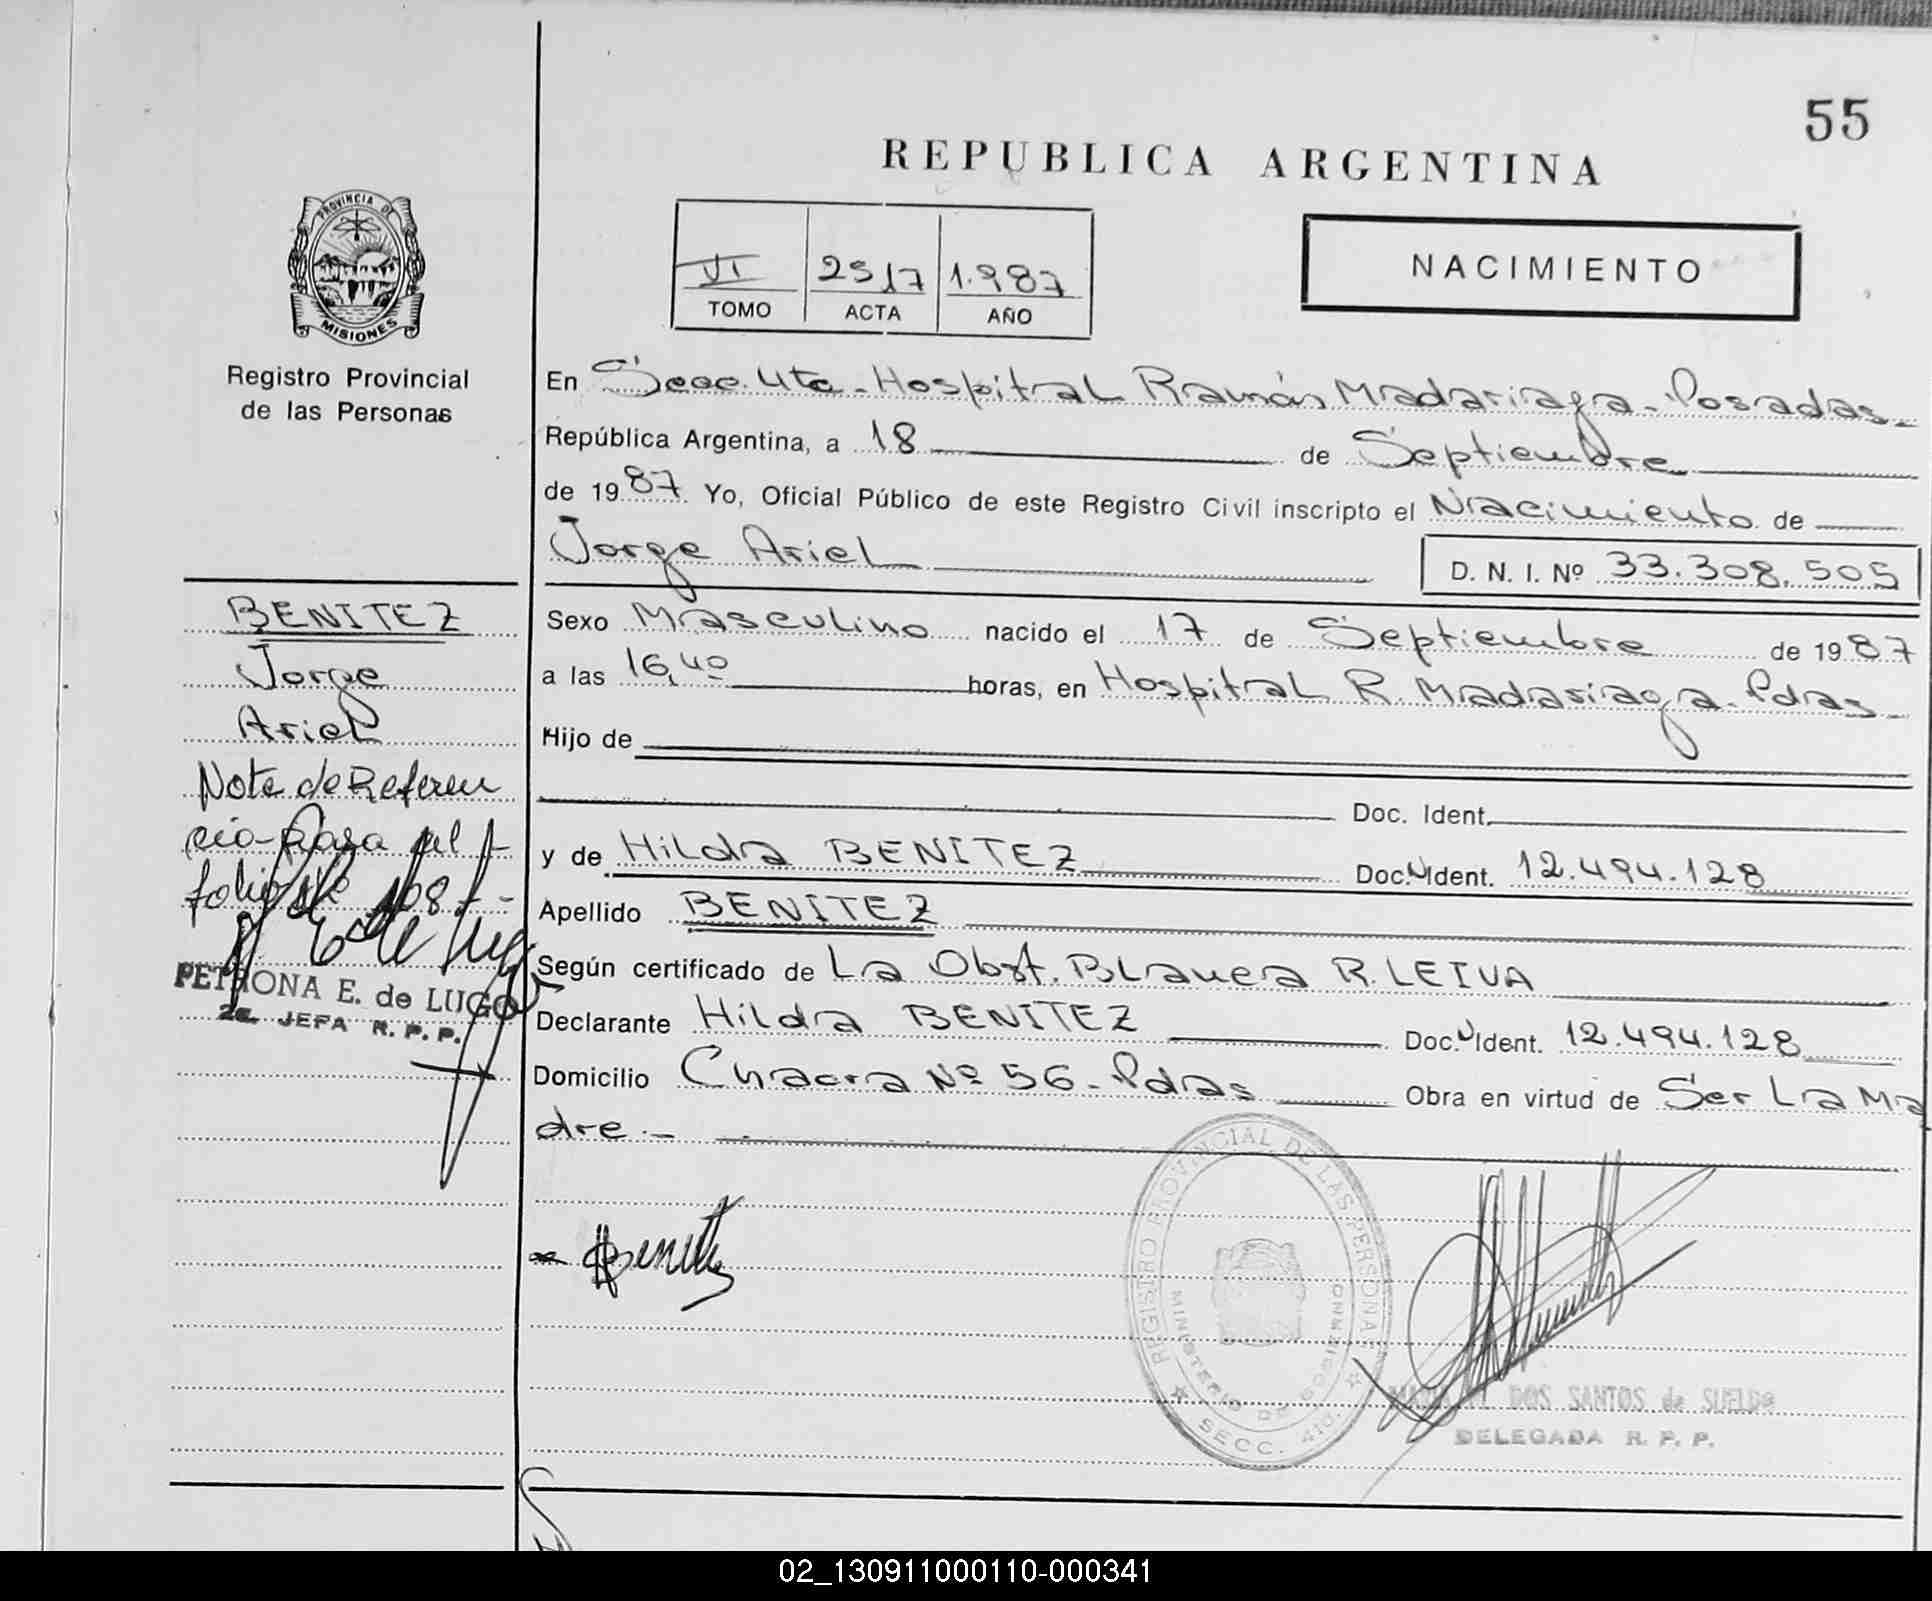 55
REPUBLICA ARGENTINA
PROVINCIA DE
MISIONES
Registro Provincial
de las Personas
VI 2517 1.987
TOMO ACTA AÑO
NACIMIENTO
En Secc. 4ta - Hospital Ramón Madariaga - Posadas -
República Argentina, a 18 de Septiembre
de 1987 Yo, Oficial Público de este Registro Civil inscripto el Nacimiento de
Jorge Ariel D. N. I. Nº 33.308.505
Sexo Masculino nacido el 17 de Septiembre de 1987
a las 16,40 horas, en Hospital R. Madariaga - Pdas -
Hijo de
Doc. Ident.
y de Hilda BENITEZ Doc. Ident. 12.494.128
Apellido BENITEZ
Según certificado de La Obst. Blanca R. LEIVA
Declarante Hilda BENITEZ Doc. Ident. 12.494.128
Domicilio Chacra Nº 56 - Pdas Obra en virtud de Ser La Ma
dre. -
BENITEZ
Jorge
Ariel
Nota de Referen
cia - Pasa al
folio Nº 108
PETRONA E. de LUGO
2a. JEFA R. P. P.
Benitez
REGISTRO PROVINCIAL DE LAS PERSONAS
MINISTERIO DE GOBIERNO
SECC. 4ta.
MARIA DOS SANTOS de SUELDO
DELEGADA R. P. P.
02_130911000110-000341